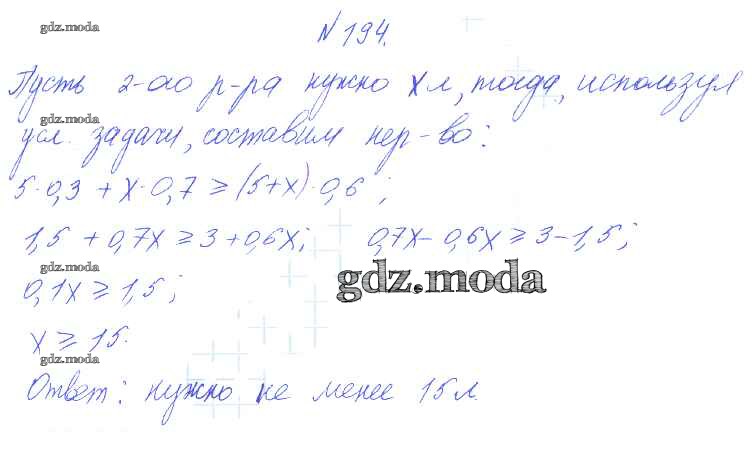 gdz.moda
№ 194.
Пусть 2-ого р-ра нужно х л, тогда, используя
gdz.moda
усл. задачи, составим нер-во:
5·0,3 + х·0,7 ⩾ (5+х)·0,6 ;
gdz.moda
1,5 + 0,7х ⩾ 3 + 0,6х; 0,7х – 0,6х ⩾ 3 – 1,5;
gdz.moda
gdz.moda
0,1х ⩾ 1,5 ;
х ⩾ 15.
gdz.moda
Ответ: нужно не менее 15 л.